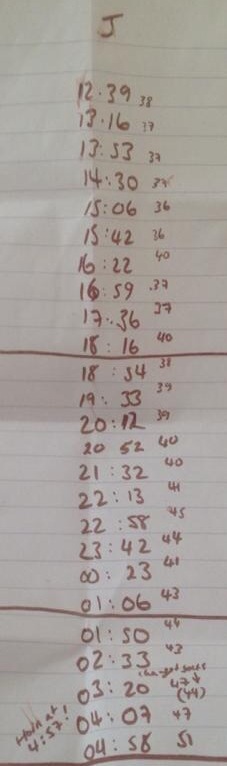 J
12.39 38
13.16 37
13:53 37
14:30 37
15:06 36
15:42 36
16:22 40
16:59 37
17:36 37
18:16 40
18:54 38
19:33 39
20:12 39
20 52 40
21:32 40
22:13 41
22:58 45
23:42 44
00:23 41
01:06 43
01:50 44
02:33 43
changed socks
03:20 47 (44)
04:07 47
04:58 51
Horn at
4:57!